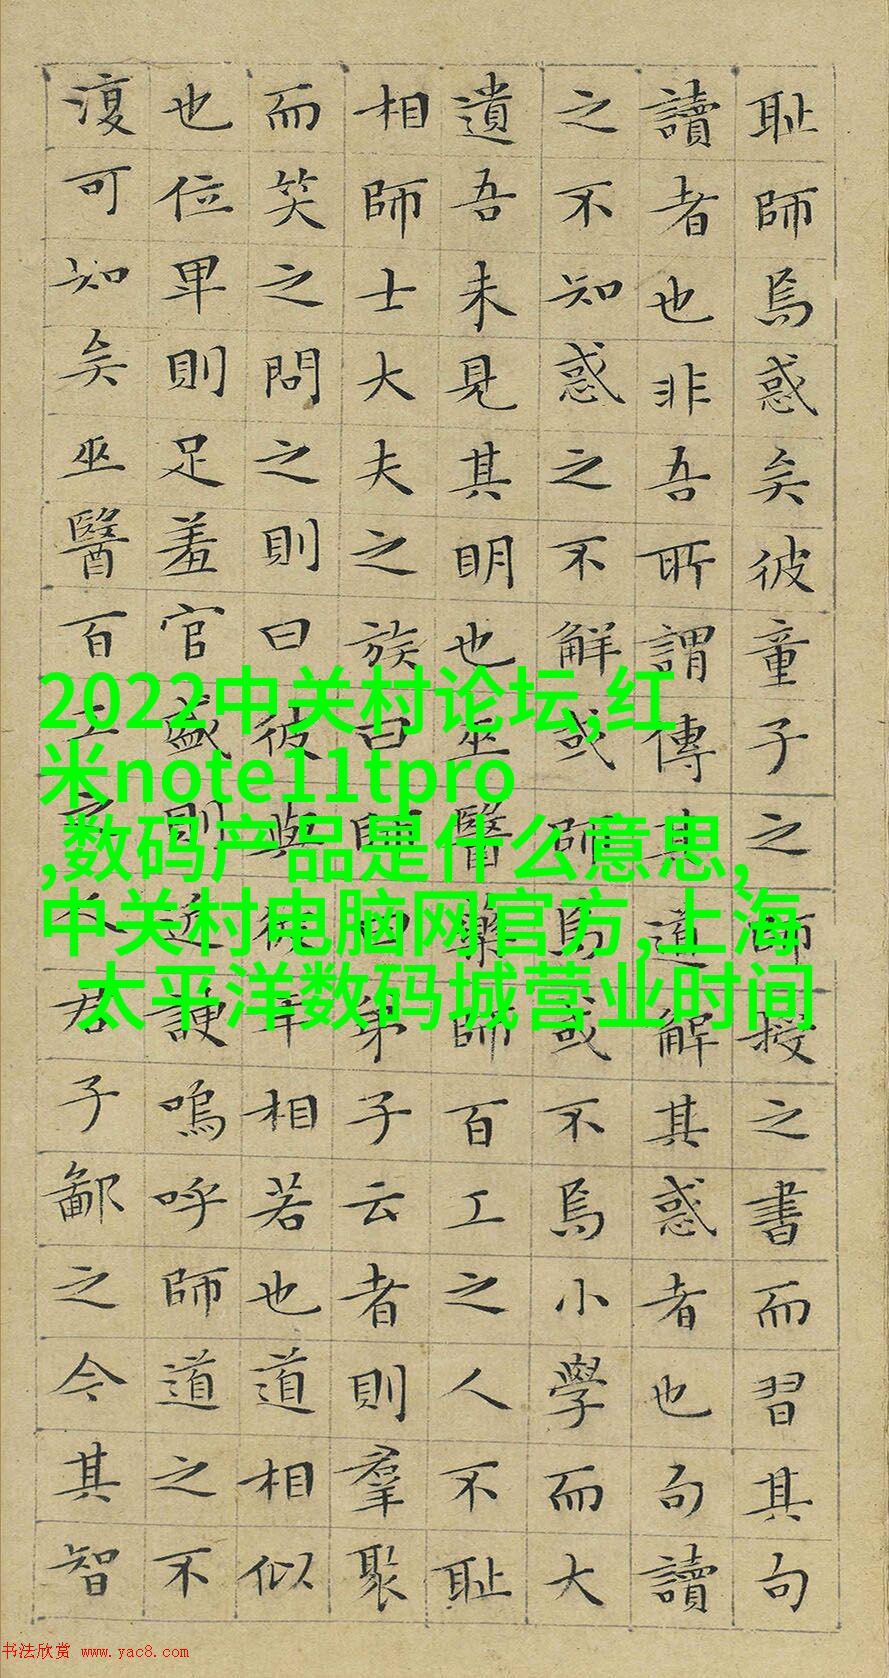 耻師焉惑矣彼童子之師授之書而習其句
讀者也非吾所謂傳其道解其惑者也句讀
之不知惑之不解或師焉或不焉小學而大
遺吾未見其明也巫醫藥師百工之人不耻
相師士大夫之族曰師曰弟子云者則羣聚
而笑之問之則曰彼與彼年相若也道相似
也位卑則足羞官盛則近諛嗚呼師道之不
復可知矣巫醫百工之人君子鄙之今其智
2022中关村论坛,红
米note11tpro
,数码产品是什么意思,
中关村电脑网官方,上海
太平洋数码城营业时间
书法欣赏 www.yac8.com